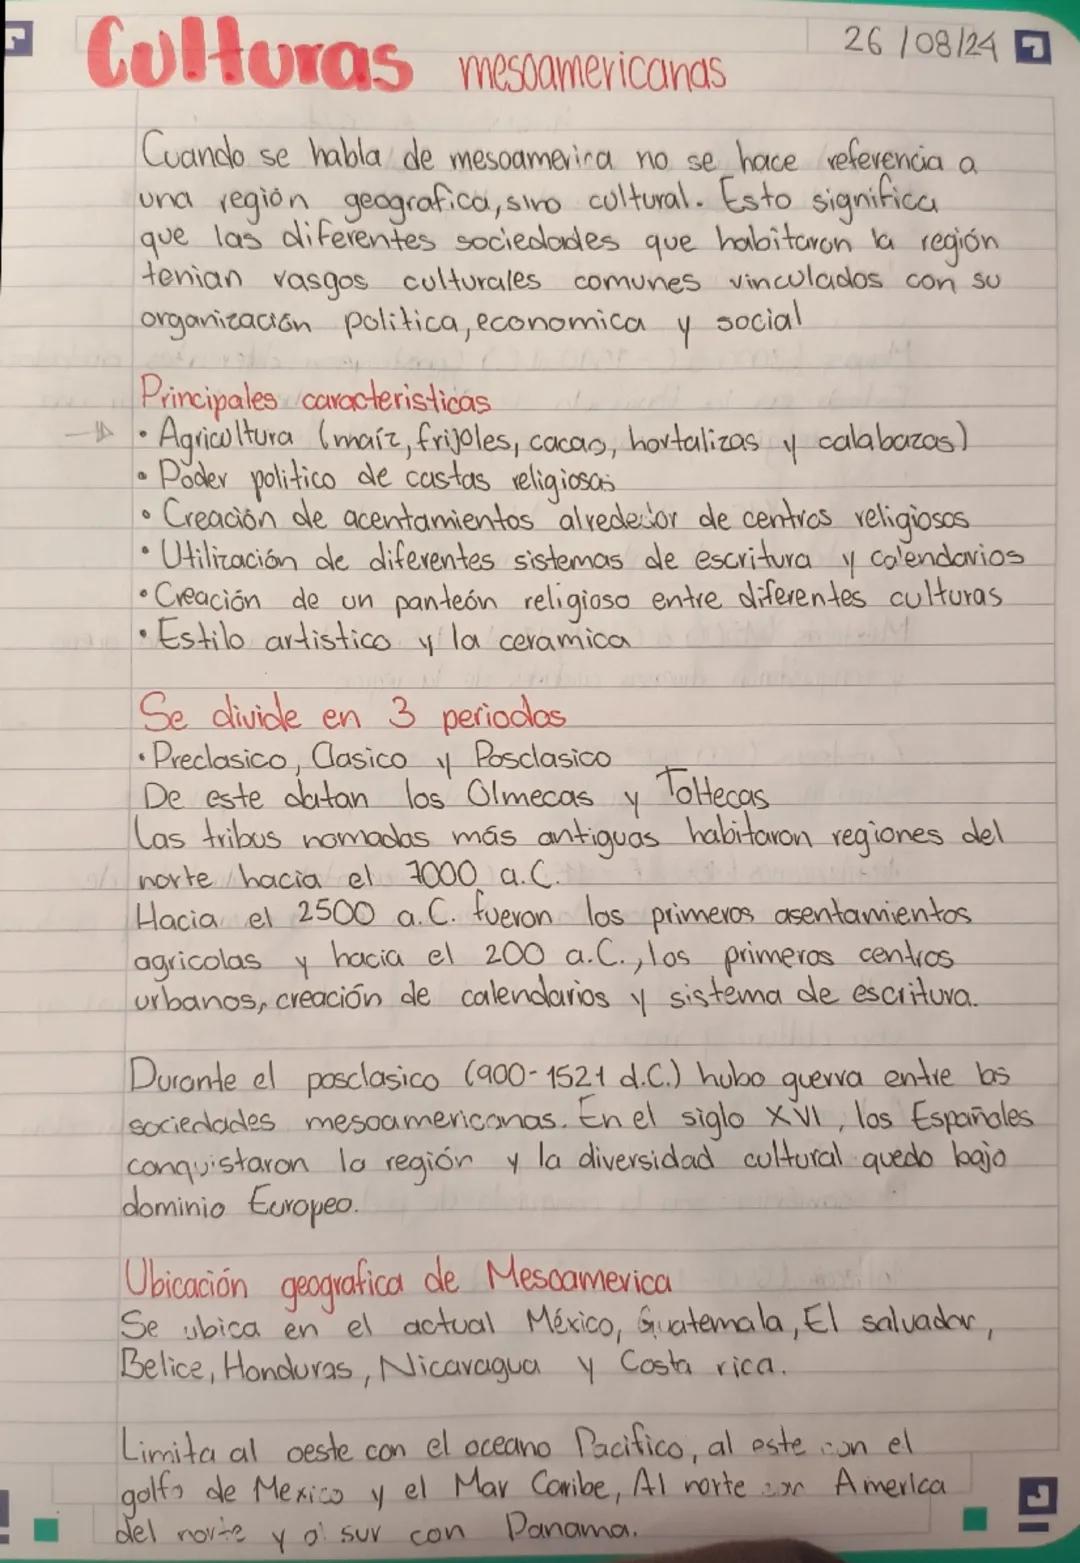 Culturas mesoamericanas
26/08/24
Cuando se habla de mesoamerica no se hace referencia a
una región geografica, sino cultural. Esto significa
que las diferentes sociedades que habitaron la región
tenian rasgos culturales comunes vinculados con su
organización politica, economica y social
Principales caracteristicas
• Agricultura (maíz, frijoles, cacao, hortalizas y calabazas)
• Poder politico de castas religiosas
• Creación de acentamientos alrededor de centros religiosos
• Utilización de diferentes sistemas de escritura y calendarios
• Creación de un panteón religioso entre diferentes culturas
• Estilo artistico y la ceramica
Se divide en 3 periodos
• Preclasico, Clasico y Posclasico
De este datan los Olmecas y Toltecas
Las tribus nomadas más antiguas habitaron regiones del
norte hacia el 7000 a.C.
Hacia el 2500 a.C. fueron los primeros asentamientos
agricolas y hacia el 200 a.C., los primeros centros
urbanos, creación de calendarios y sistema de escritura.
Durante el posclasico (900-1521 d.C.) hubo guerra entre las
sociedades mesoamericanas. En el siglo XVI, los Españoles
conquistaron la región y la diversidad cultural quedo bajo
dominio Europeo.
Ubicación geografica de Mesoamerica
Se ubica en el actual México, Guatemala, El salvador,
Belice, Honduras, Nicaragua y Costa rica.
Limita al oeste con el oceano Pacifico, al este con el
golfo de Mexico y el Mar Caribe, Al norte con America
del norte y al sur con Panama.